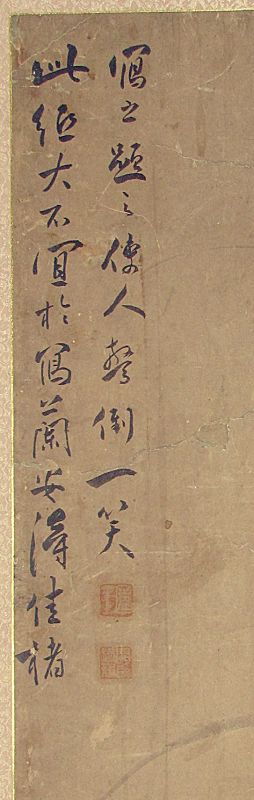 此紙大不宜於寫蘭安得佳楮
寫題之使人驚倒一笑